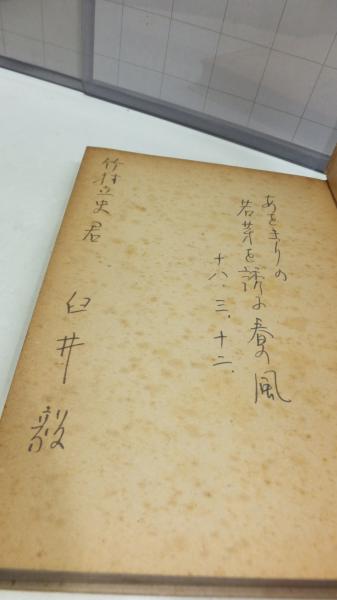 あをきりの
若芽を誘ふ春の風
十八、三、十二、
竹村立史君
臼井毅